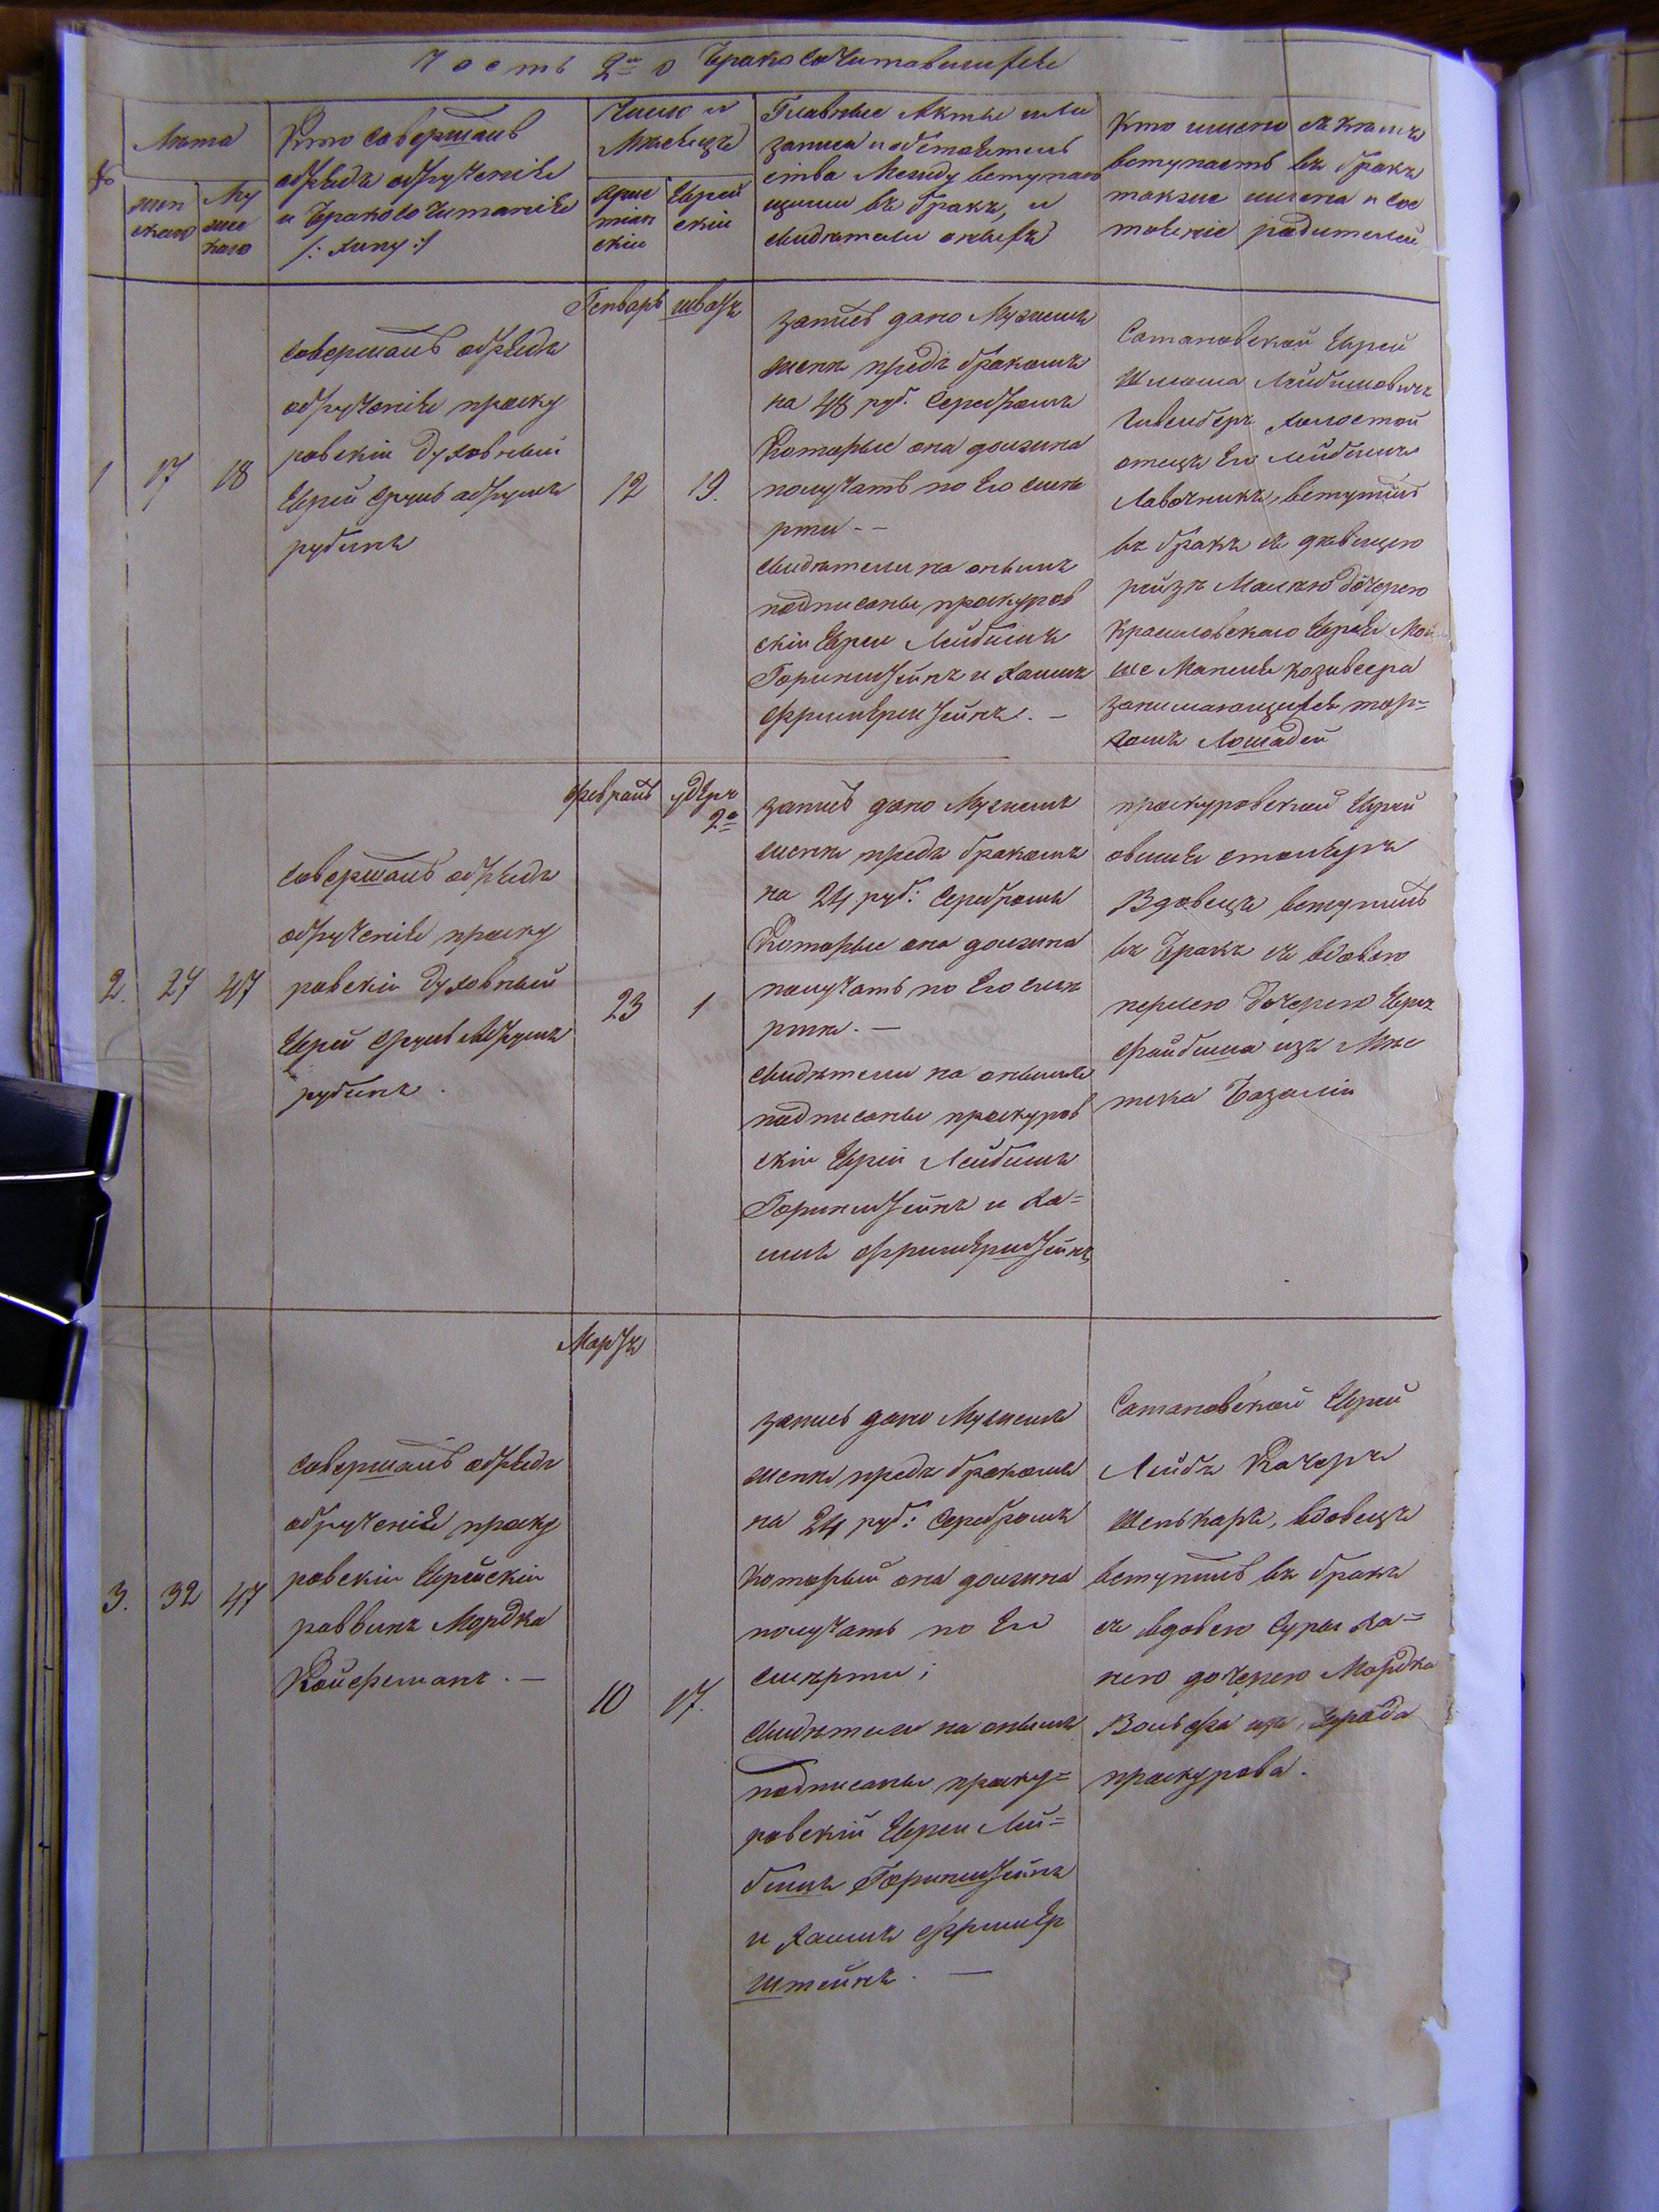 Часть 2я о Бракосочитавшихся
№
Лѣта
жен
скаго
Му
жес
каго
Кто совершалъ
обрядъ обрученія
и Бракосочитанія
/: хипу :/
Число и
Мѣсяцъ
хрис
тиан
скiи
Еврей
скiи
Главные Акты или
записи и обстоятель
ства Между вступаю
щими въ бракъ, и
свидѣтели оныхъ
Кто имено съ кемъ
вступаетъ въ бракъ
также имена и сос
тояние родителей
Генварь
шватъ
1
17
18
совершалъ обрядъ
обрученія проску
ровскiи духовный
Еврей Сруль
рубинъ
12
19.
запись дано Мужемъ
жене предъ бракомъ
на 48 руб. Серебромъ
Которые она должна
получать по Его смѣ
рти --
свидѣтели на онымъ
подписаны проскуров
скiи Евреи Лейбишъ
Горинштейнъ и Хаимъ
. —
Сатановской Еврей
Шлёма Лейбишовичъ
холостой
отецъ Его Лейбишъ
Лавочникъ, вступилъ
въ бракъ съ девицею
рейзя Малкою дочерею
Красиловскаго Еврея Мой
ше
занимающихся тор=
гомъ Лошадей
Февраль
удеръ
2й
2.
27
47
совершалъ обрядъ
обрученія проску
ровскiи духовный
Еврей Сруль
рубинъ
23
1
запись дано Мужемъ
жене предъ бракомъ
на 24 руб: Серебромъ
Которые она должна
получать по Его смѣ
рти. —
свидѣтели на онымъ
подписаны проскуров
скiи Евреи Лейбишъ
Горинштейнъ и Ха=
имъ
проскуровской Еврей
столяръ
Вдовецъ вступилъ
въ бракъ съ вдовою
перлею дочерею Герш
Файбиша изъ Мѣс
тека Базалiи
Мартъ
3.
32
47
совершалъ обрядъ
обрученія проску
ровскiи Еврейскiи
раввинъ Мордка
. —
10
17.
запись дано Мужемъ
жене предъ бракомъ
на 24 руб: Серебромъ
Который она должна
получать по Его
смѣрти;
свидѣтели на онымъ
подписаны проску=
ровскiи Евреи Лей=
бишъ Горинштейнъ
и Хаимъ
штейнъ. —
Сатановской Еврей
Лейбъ Качеръ
Шенкаръ, вдовецъ
вступилъ въ бракъ
съ вдовою Суры Ха=
нею дочерею Мордка
Вольфа из города
проскурова.